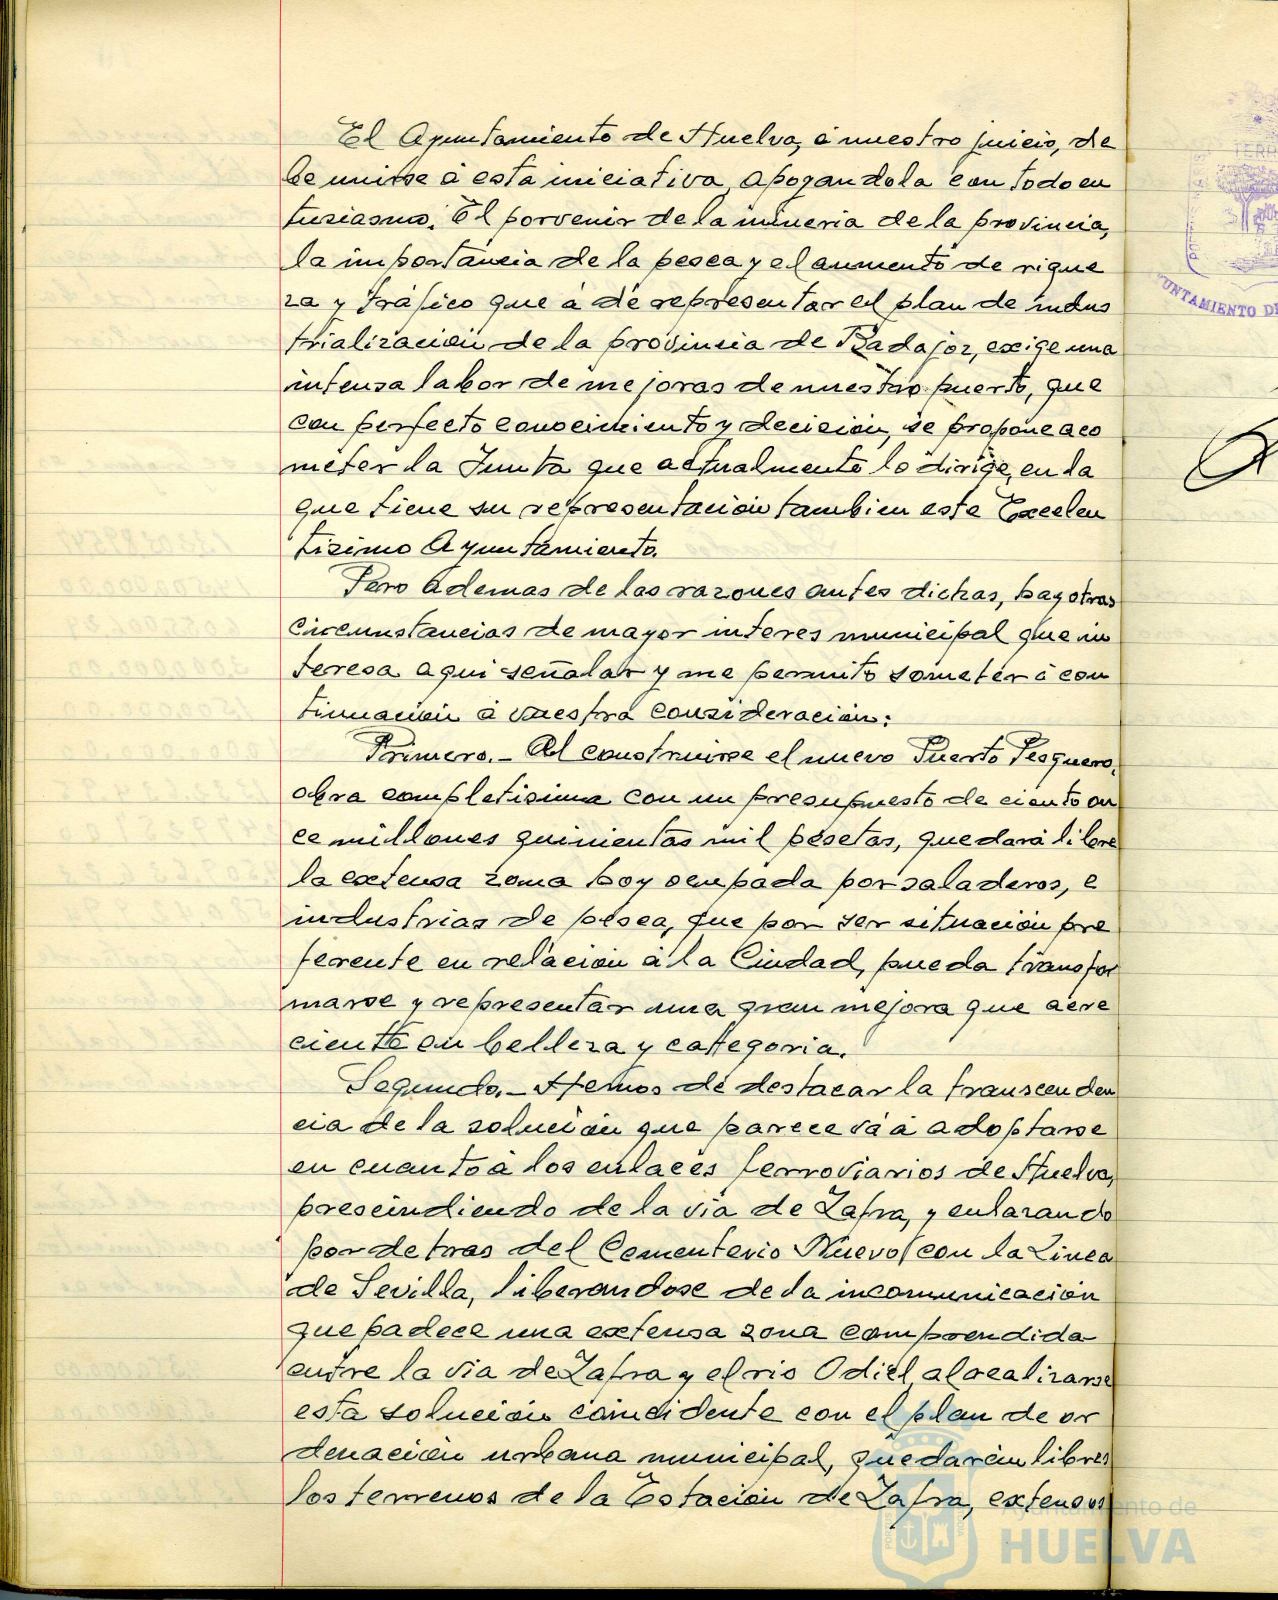 El Ayuntamiento de Huelva, á nuestro juicio, de
be unirse á esta iniciativa, apoyandola con todo en
tusiasmo. El porvenir de la mineria de la provincia,
la importancia de la pesca y el aumento de rique
za y tráfico que á de representar el plan de indus
trialización de la provincia de Badajoz, exige una
intensa labor de mejoras de nuestro puerto, que
con perfecto conocimiento y decición, se propone aco
meter la Junta que actualmente lo dirige, en la
que tiene su representación tambien este Excelen
tisimo Ayuntamiento.
Pero ademas de las razones antes dichas, hay otras
circunstancias de mayor interes municipal que in
teresa aqui señalar y me permito someter á con
tinuación á vuestra consideración:
Primero.- Al construirse el nuevo Puerto Pesquero,
obra completisima con un presupuesto de ciento on
ce millones quinientas mil pesetas, quedará libre
la extensa zona hoy ocupada por saladeros, e
industrias de pesca, que por ser situación pre
ferente en relación á la Ciudad, pueda transfor
marse y representar una gran mejora que acre
ciente en belleza y categoria.
Segundo.- Hemos de destacar la transcenden
cia de la solución que parece vá á adoptarse
en cuanto á los enlaces ferroviarios de Huelva,
prescindiendo de la via de Zafra, y enlazando
por detras del Cementerio Nuevo, con la Linea
de Sevilla, liberandose de la incomunicación
que padece una extensa zona comprendida
entre la via de Zafra y el rio Odiel, al realizarse
esta solución coincidente con el plan de or
denación urbana municipal, quedarán libres
los terrenos de la Estación de Zafra, extensos
UNTAMIENTO DE
Ayuntamiento de
HUELVA